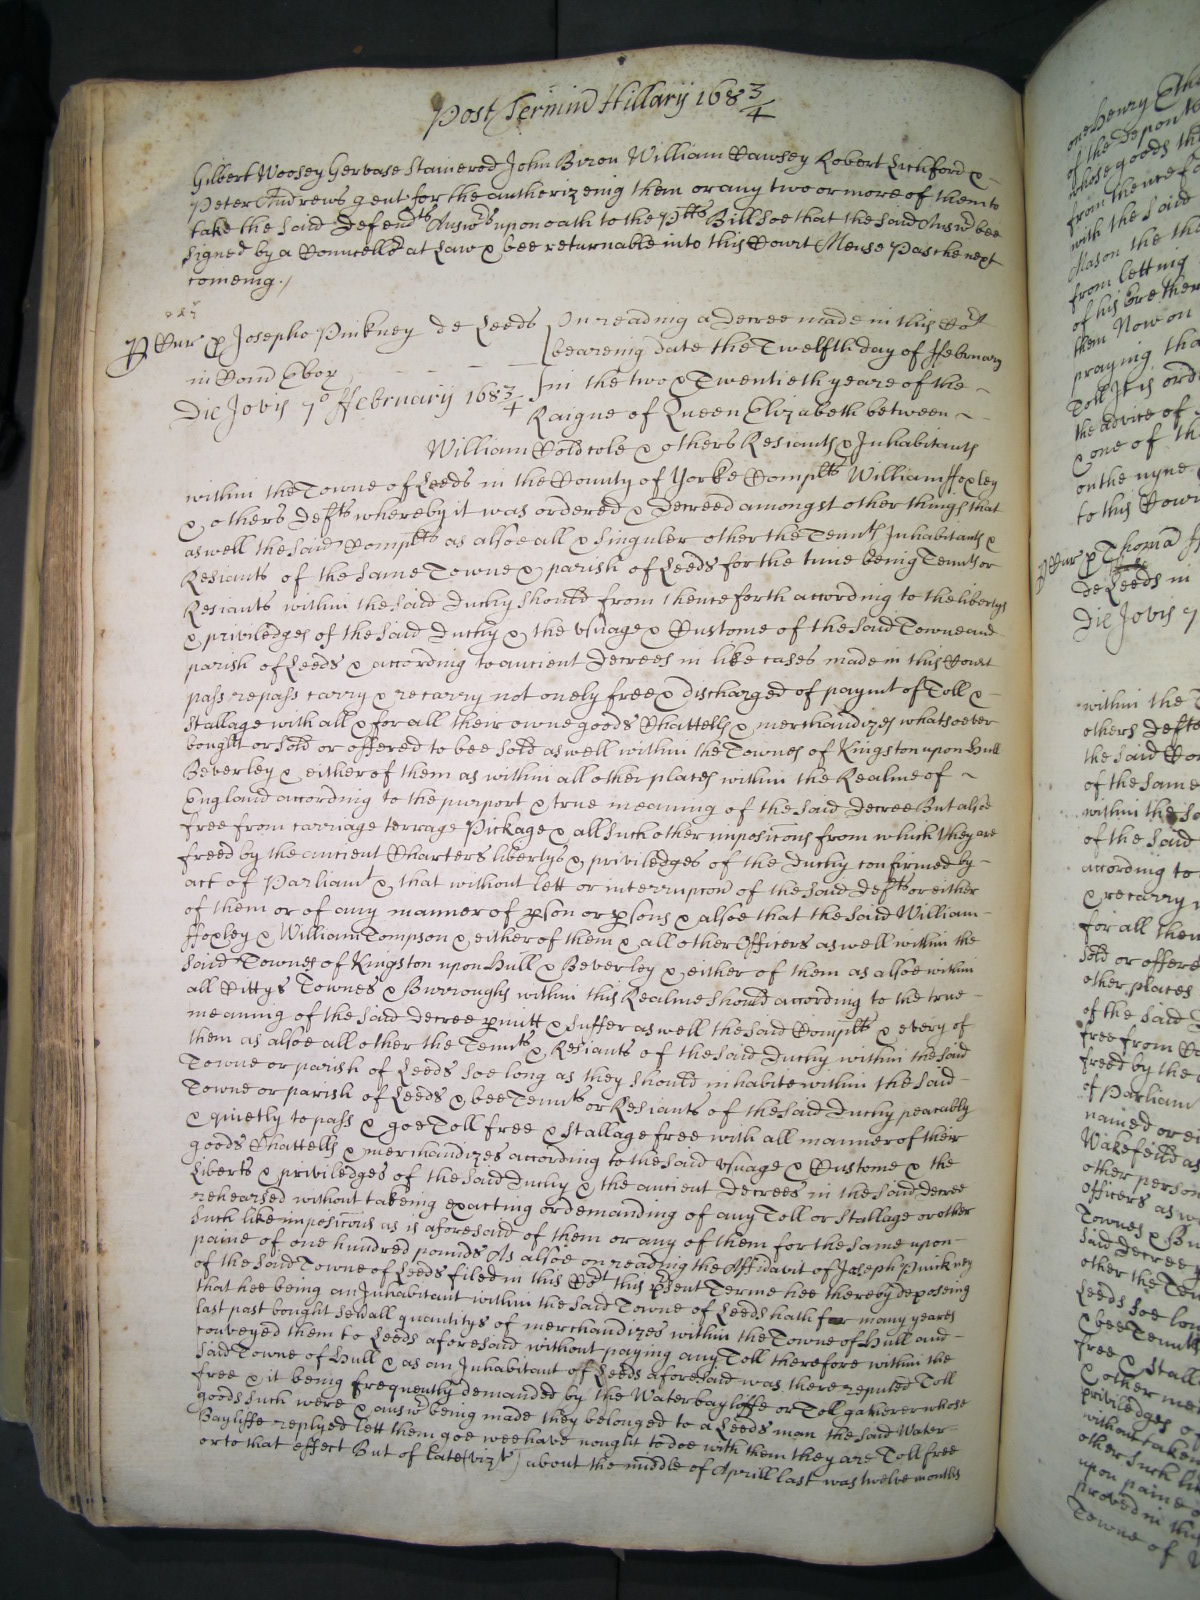 Post Terminū Hillarij 168¾
Gilbert Woosey Gervase Stainered John Biron William Rawsey Robert Lichford &
Peter Andrews gent for the authorizeing them or any two or more of them to
take the said Defendts Answrs upon oath to the Pltts Bill soe that the said Answr bee
signed by a Councello at Law & bee returnable into this Court Mense Pasche next
comeing./
Cur p Josepho Pinkney de Leeds
in Com Ebor
Die Jovis 7o ffebruarij 168¾
On reading a Decree made in this Cort
beareing date the Twelfth day of ffebruary
in the two & Twentieth yeare of the
Raigne of Queen Elizabeth between
William Coldcole & others Resiants & Inhabitants
within the Towne of Leeds in the County of Yorke Complts William ffoxley
& others Defts whereby it was ordered & Decreed amongst other things that
as well the said Complts as alsoe all & singuler other the Tennts Inhabitants &
Resiants of the same Towne & parish of Leeds for the time being Tennts or
Resiants within the said Duchy should from thenceforth according to the libertys
& priviledges of the said Duchy & the usuage & Custome of the said Towne and
parish of Leeds & according to ancient Decrees in like cases made in this Court
pass repass carry & recarry not onely free & discharged of paymt of Toll &
Stallage with all & for all their owne goods Chattells & merchandizes whatsoever
bought or sold or offered to bee sold as well within the Townes of Kingston upon Hull
Beverley & either of them as within all other places within the Realme of
England according to the purport & true meaning of the said Decree But alsoe
free from carriage terrage Pickage & all such other imposicons from which they are
freed by the ancient Charters libertys & priviledges of the Duchy confirmed by
act of Parliamt & that without lett or interrupcon of the said Defts or either
of them or of any manner of pson or psons & alsoe that the said William
ffoxley & William Tompson & either of them & all other Officers as well within the
said Townes of Kingston upon Hull & Beverley & either of them as alsoe within
all Cittys Townes & Burroughs within this Realme should according to the true
meaning of the said Decree pmitt & suffer as well the said Complts & every of
them as alsoe all other the Tennts & Resiants of the said Duchy within the said
Towne or parish of Leeds soe long as they should inhabite within the said
Towne or parish of Leeds & bee Tennts or Resiants of the said Duchy peacably
& quietly to pass & goe Toll free & Stallage free with all manner of their
goods Chattells & merchandizes according to the said usuage & Custome & the
liberts & priviledges of the said Duchy & the ancient Decrees in the said decree
rehearsed without takeing exacting or demanding of any Toll or Stallage or other
such like imposicons as is aforesaid of them or any of them for the same upon
paine of one hundred pounds As alsoe on reading the Affidavit of Joseph Pinkney
of the said Towne of Leeds filed in this Cort this psent Terme hee thereby deposeing
that hee being an Inhabitant within the said Towne of Leeds hath for many yeares
last past bought sevall quantitys of merchandizes within the Towne of Hull and
conveyed them to Leeds aforesaid without paying any Toll therefore within the
said Towne of Hull & as an Inhabitant of Leeds aforesaid was there reputed Toll
free & it being frequently demanded by the Waterbayliffe or Toll gatherer whose
goods such were & answr being made they belonged to a Leeds man the said Water
Bayliffe replyed lett them goe wee have nought to doe with them they are Toll free
or to that effect But of late (vizt) about the middle of Aprill last was twelve months
one Henry
of the
whose goods
from thence
with the said
Mason the
from letting
of his
them Now on
praying tha
Toll It is ord
the advice of
& one of th
on the nyne
to this Cour
Cur p Thoma
de Leeds in
Die Jovis 7
within the
others Defts
the said Co
of the same
within the sa
of the said
according to
& recarry
for all their
sold or offere
other places
of the said
free from
freed by the
of Parliam
named or ei
Wakefeild as
other person
officers as w
Townes & Bu
said Decree
other the Ten
Leeds soe lon
& bee Tennts
free & Stall
& other mer
priviledges of
without takein
other such li
upon paine
proved in this
Towne of